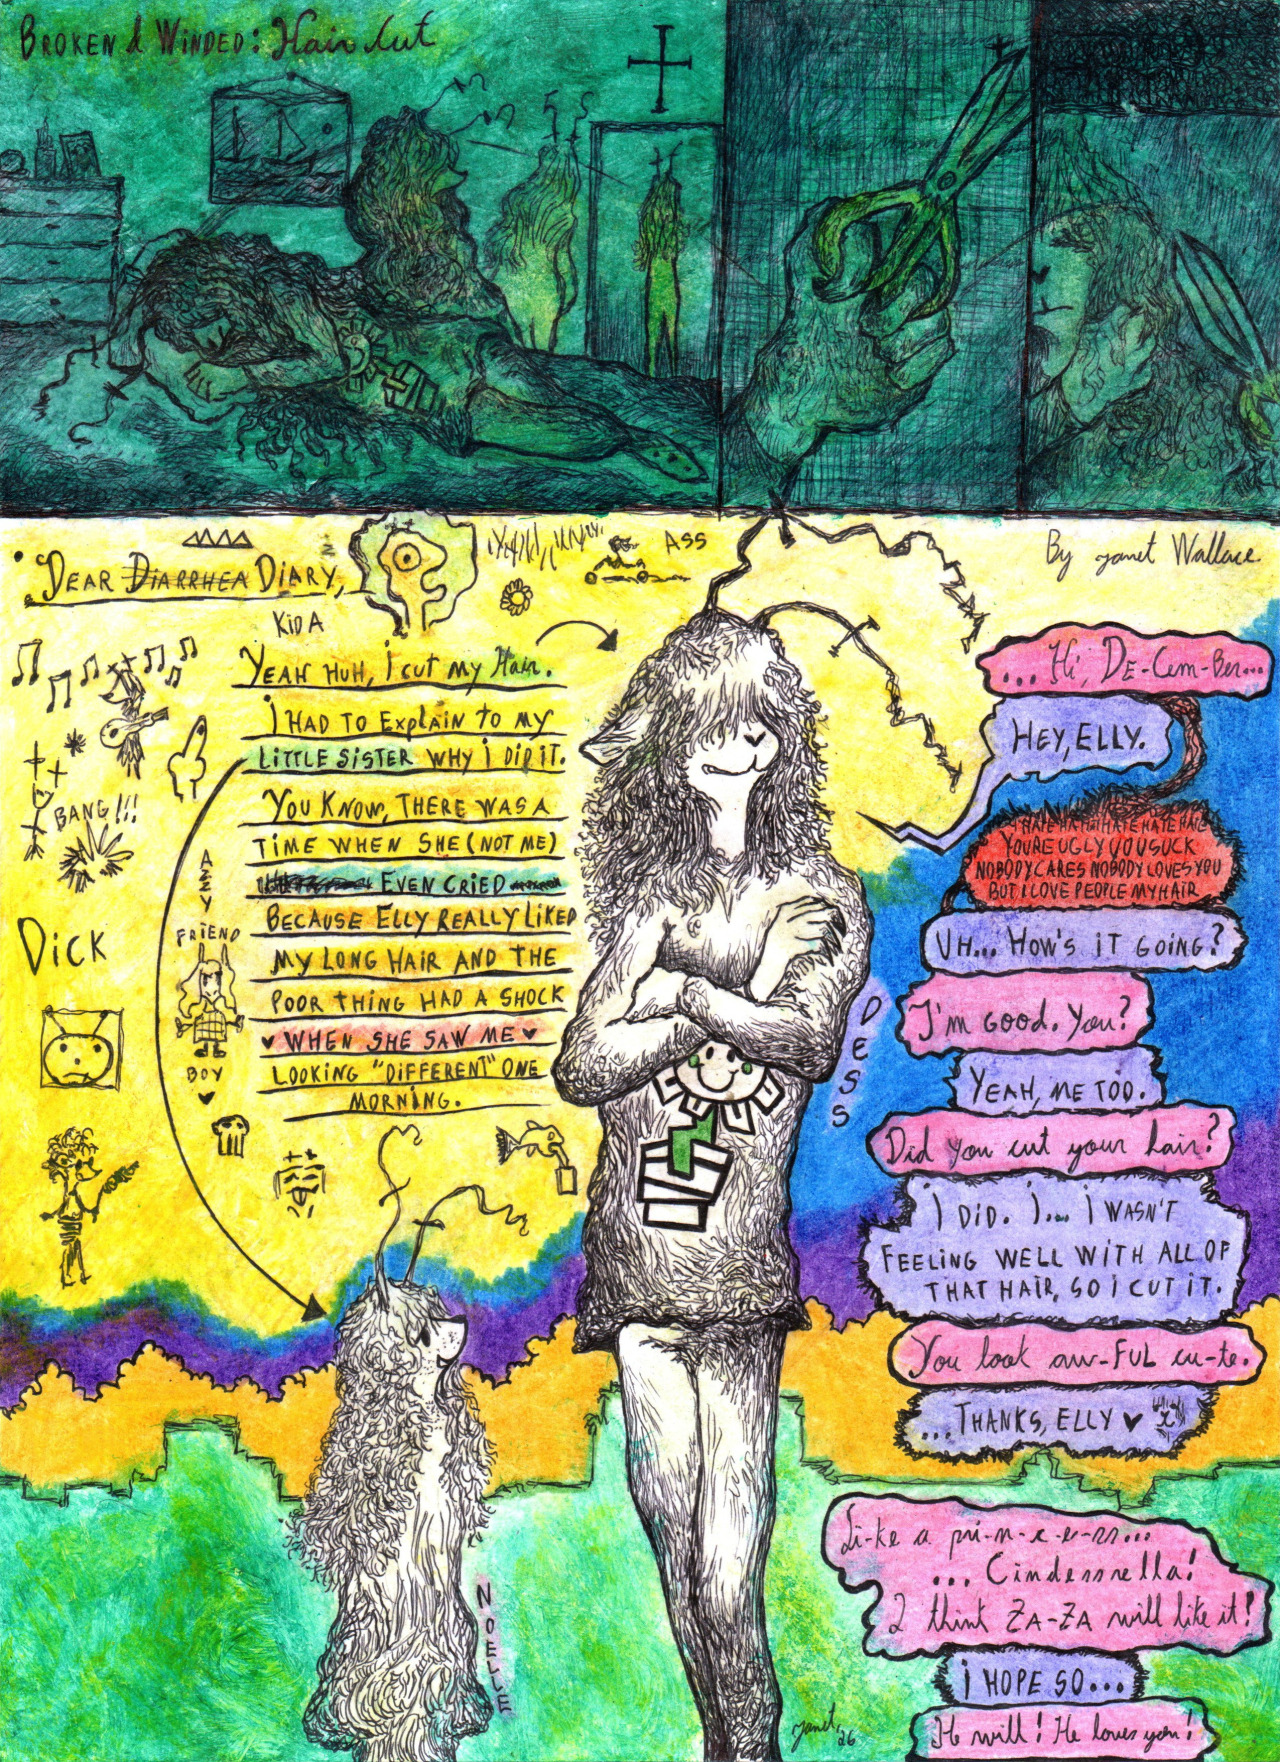 BROKEN & WINDED: Hair Cut
By Janet Wallace
ASS
DEAR DIARRHEA DIARY,
KID A
YEAH HUH, I CUT MY Hair.
I HAD TO EXPLAIN TO MY
LITTLE SISTER WHY I DID IT.
YOU KNOW, THERE WAS A
TIME WHEN SHE (NOT ME)
EVEN CRIED
BECAUSE ELLY REALLY LIKED
MY LONG HAIR AND THE
POOR THING HAD A SHOCK
♥ WHEN SHE SAW ME ♥
LOOKING "DIFFERENT" ONE
MORNING.
BANG!!!
DICK
AZZY
FRIEND
BOY
DESS
NOELLE
...Hi, DE-Cem-Ber...
HEY, ELLY.
I HATE HATE HATE HATE HATE
YOU'RE UGLY YOU SUCK
NOBODY CARES NOBODY LOVES YOU
BUT I LOVE PEOPLE MY HAIR
UH... HOW'S IT GOING?
I'm GOOD. You?
YEAH, ME TOO.
Did you cut your hair?
I DID. I... I WASN'T
FEELING WELL WITH ALL OF
THAT HAIR, SO I CUT IT.
You look aw-FUL cu-te.
...THANKS, ELLY ♥
Li-ke a pri-n-c-e-ss...
... Cindessrella!
I think ZA-ZA will like it!
I HOPE SO...
He will! He loves you!
Janet '26